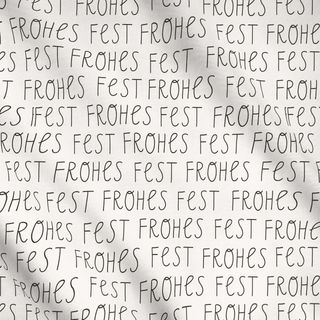 FEST FROHES FEST FROHES FEST
FEST FROHES FEST FROHES FEST
FEST FROHES FEST FROHES FEST
FROHES FEST FROHES FEST
FEST FROHES FEST FROHES FEST
FROHES FEST FROHES FEST FROHES
FEST FROHES FEST FROHES FEST
FEST FROHES FEST FROHES FEST
FROHES FEST FROHES FEST FEST
FEST FROHES FEST FROHES FEST
FROHES FEST FROHES FEST
FEST FROHES FEST FROHES